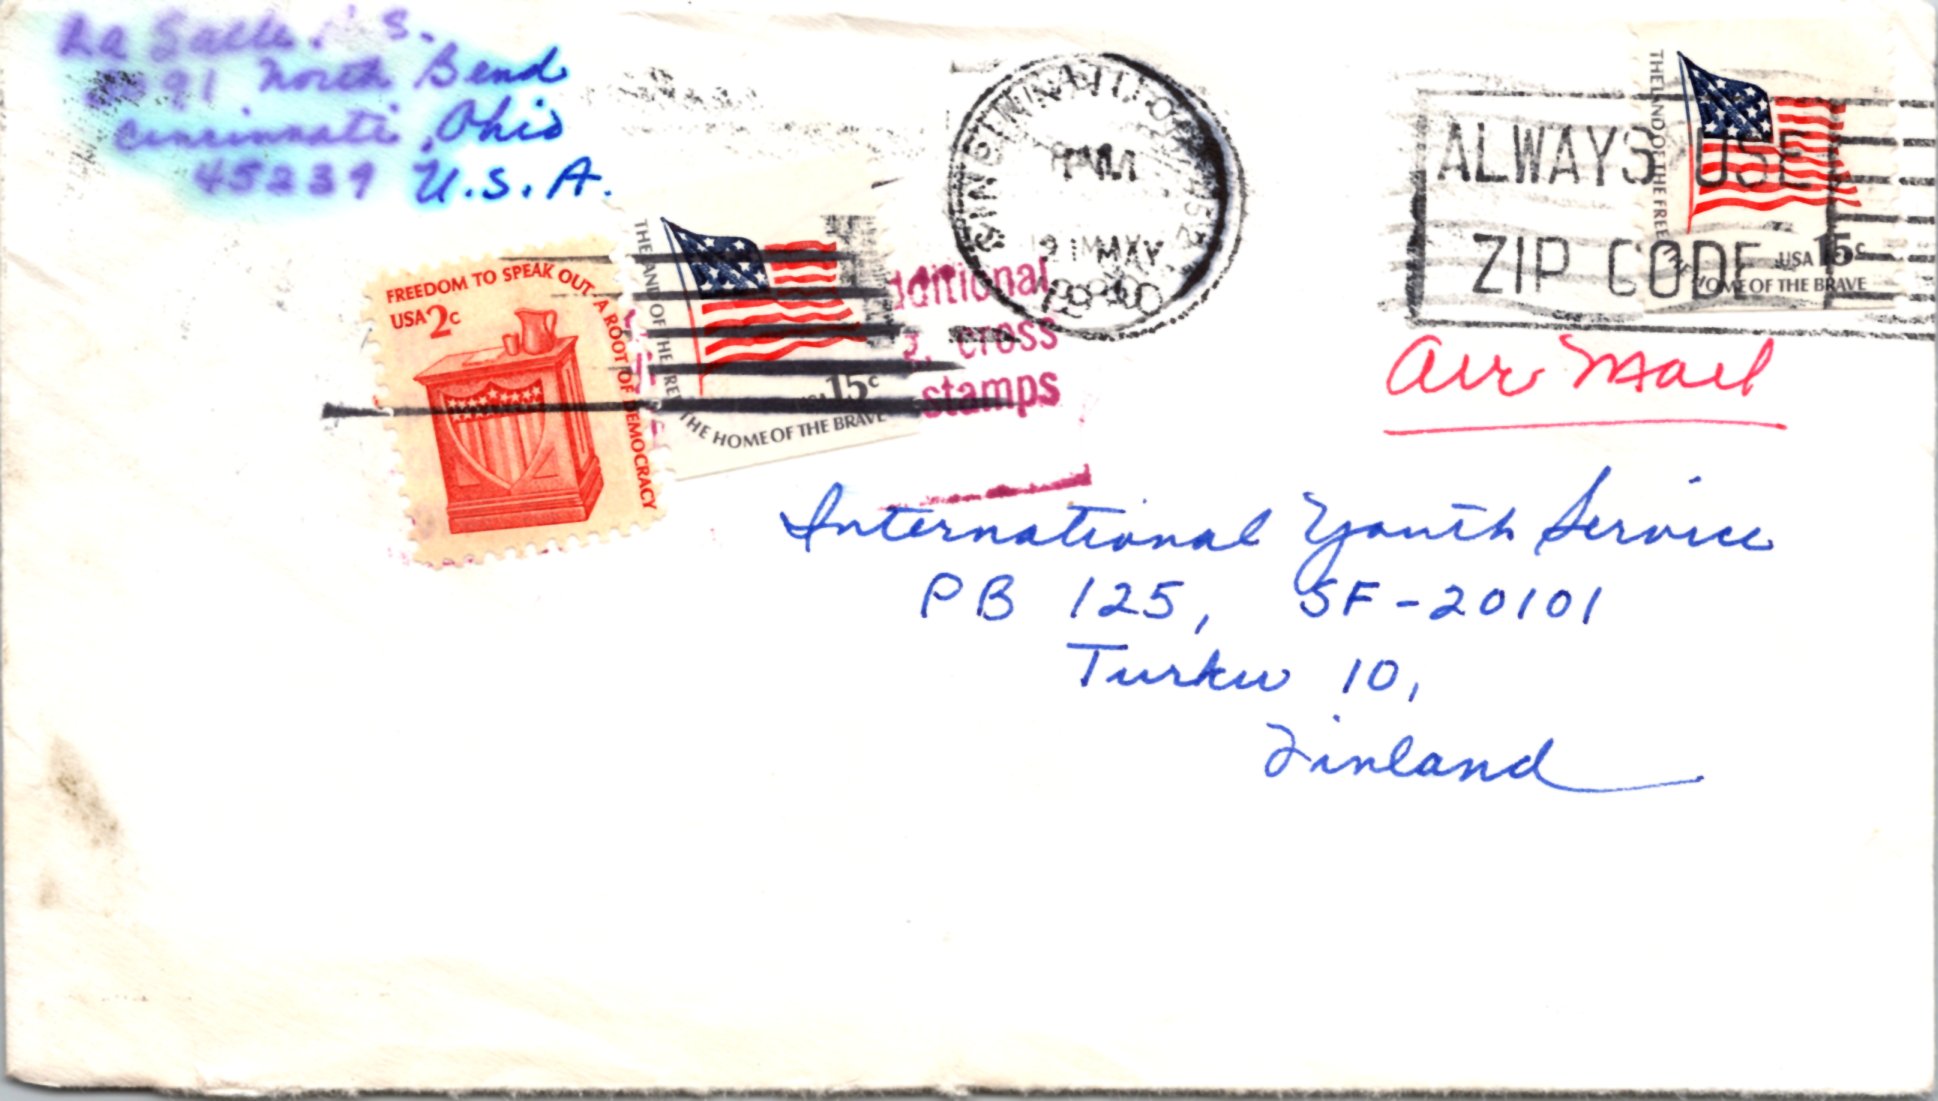 La Salle H.S.
North Bend
Cincinnati, Ohio
45239 U.S.A.
FREEDOM TO SPEAK OUT-A ROOT OF DEMOCRACY
USA 2c
THE LAND OF THE FREE THE HOME OF THE BRAVE
15c
additional
cross
stamps
CINCINNATI, OH
PM
MAY
1980
ALWAYS USE
ZIP CODE
THE LAND OF THE FREE THE HOME OF THE BRAVE
USA 15c
Air Mail
International Youth Service
PB 125, SF-20101
Turku 10,
Finland